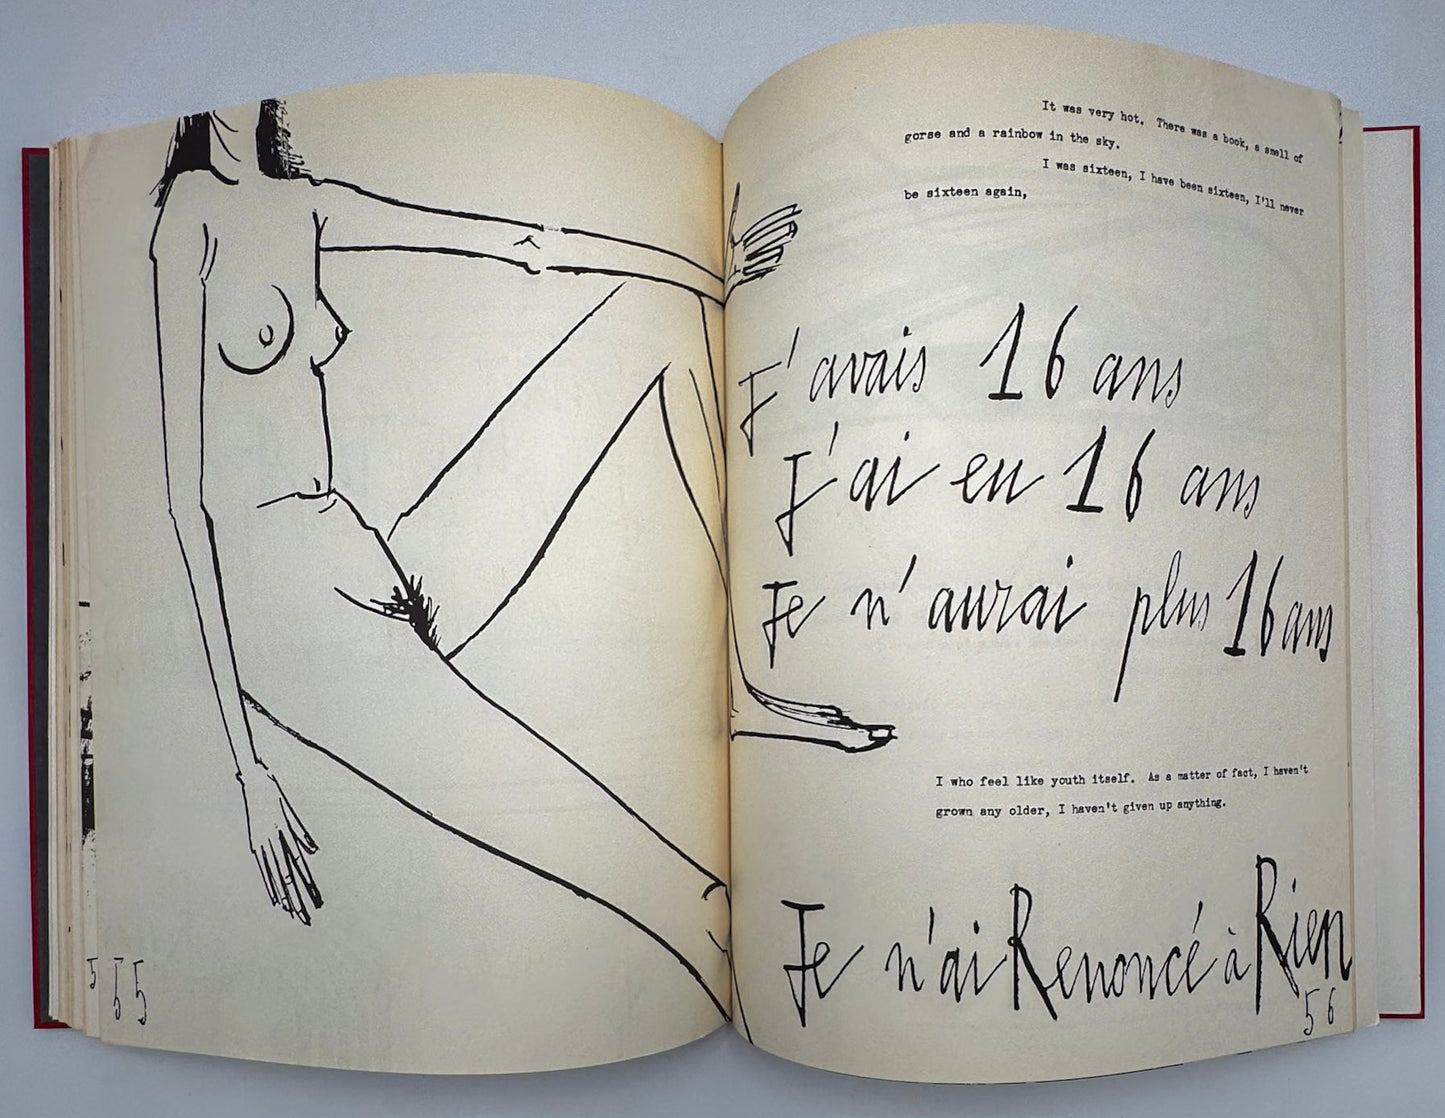 55
It was very hot. There was a book, a smell of
gorse and a rainbow in the sky.
I was sixteen, I have been sixteen, I'll never
be sixteen again,
J'avais 16 ans
J'ai eu 16 ans
Je n'aurai plus 16 ans
I who feel like youth itself. As a matter of fact, I haven't
grown any older, I haven't given up anything.
Je n'ai Renoncé à Rien
56